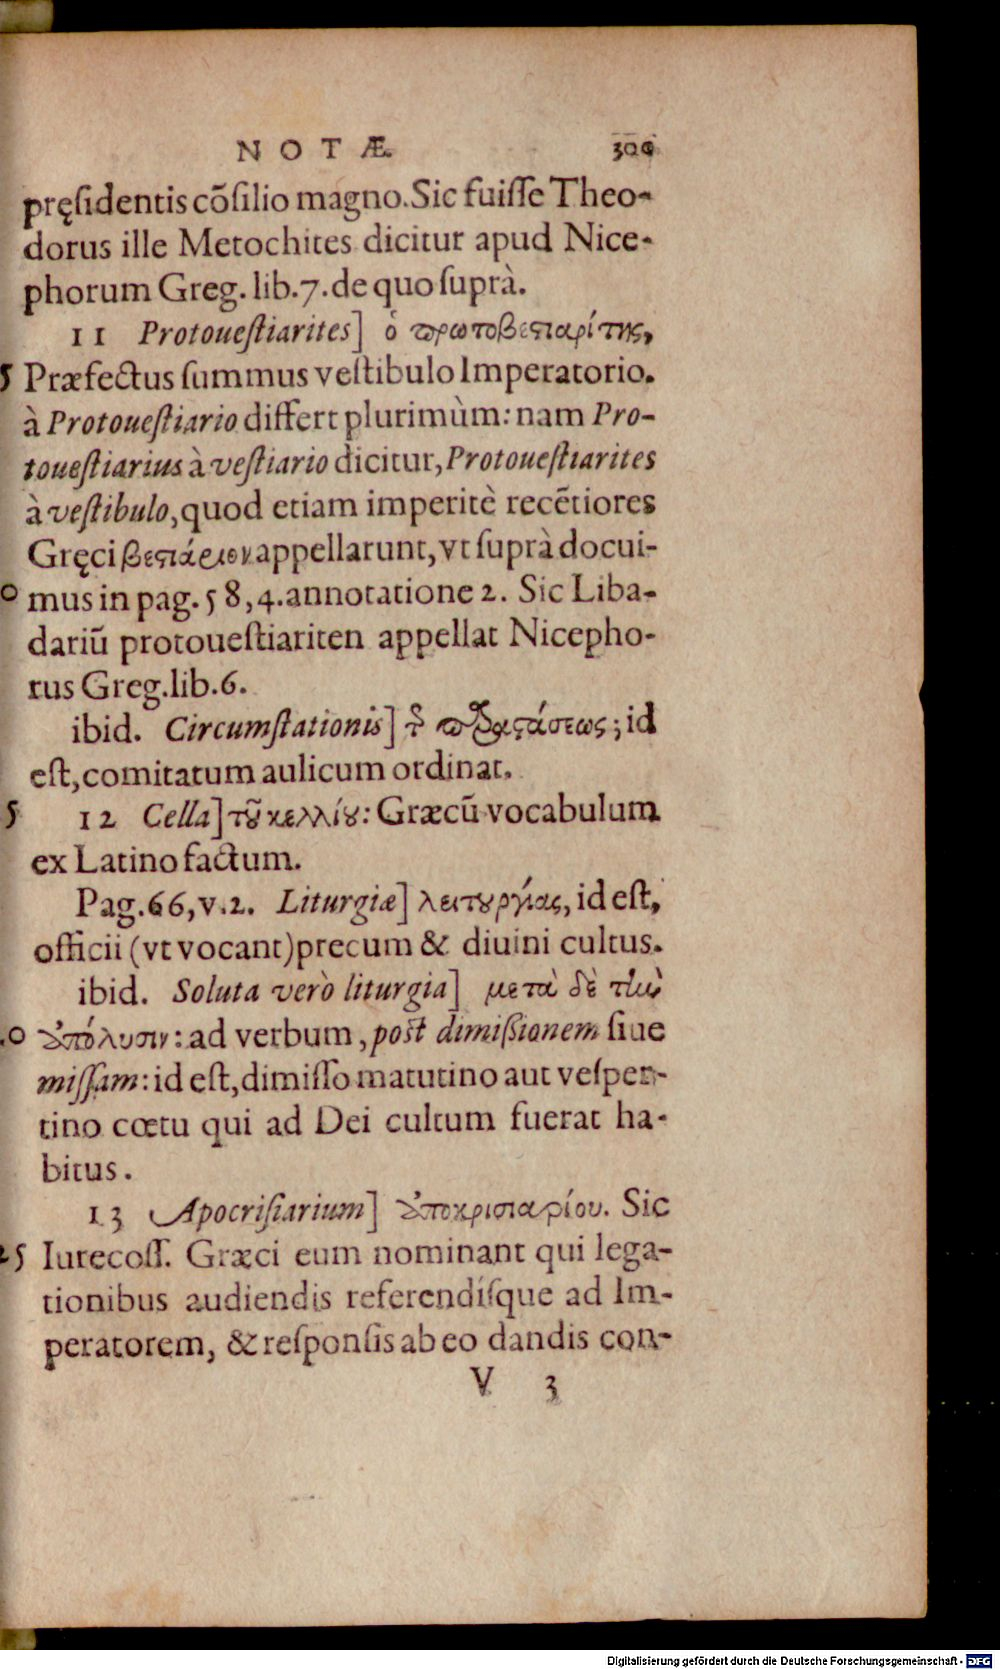 NOTÆ. 300
pręsidentis cõsilio magno. Sic fuisse Theo-
dorus ille Metochites dicitur apud Nice-
phorum Greg. lib. 7. de quo suprà.
11 Protouestiarites] ὁ πρωτοβεστιαρίτης,
5 Præfectus summus vestibulo Imperatorio.
à Protouestiario differt plurimùm: nam Pro-
touestiarius à vestiario dicitur, Protouestiarites
à vestibulo, quod etiam imperitè recẽtiores
Gręci βεστιάριον appellarunt, vt suprà docui-
0 mus in pag. 58, 4. annotatione 2. Sic Liba-
dariũ protouestiariten appellat Nicepho-
rus Greg. lib. 6.
ibid. Circumstationis] τ̃ παραστάσεως; id
est, comitatum aulicum ordinat.
5 12 Cella] τοῦ κελλίου: Græcũ vocabulum
ex Latino factum.
Pag. 66, v. 2. Liturgiæ] λειτουργίας, id est,
officii (vt vocant) precum & diuini cultus.
ibid. Soluta verò liturgia] μετὰ δὲ τὴν
.0 ἀπόλυσιν: ad verbum, post dimißionem siue
missam: id est, dimisso matutino aut vesper-
tino cœtu qui ad Dei cultum fuerat ha-
bitus.
13 Apocrisiarium] ἀποκρισιαρίου. Sic
25 Iurecoss. Græci eum nominant qui lega-
tionibus audiendis referendísque ad Im-
peratorem, & responsis ab eo dandis con-
V 3
Digitalisierung gefördert durch die Deutsche Forschungsgemeinschaft - DFG